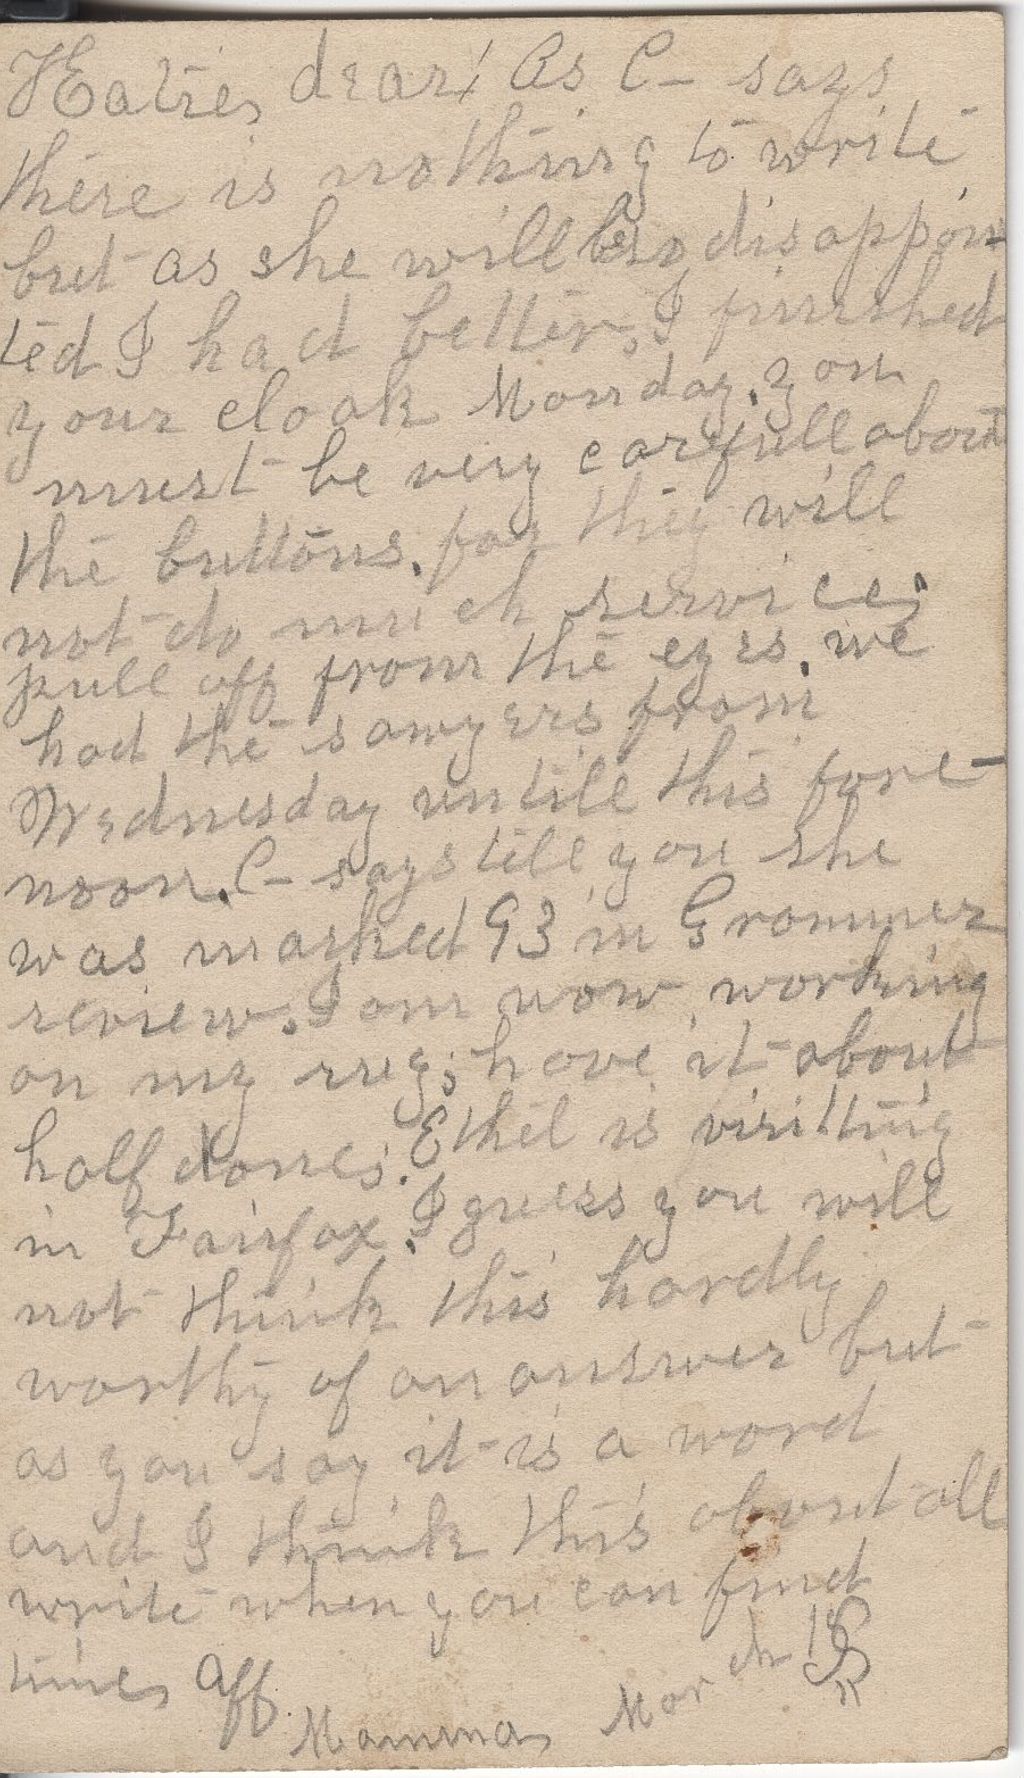 Katie, dear! As C- says
there is nothing to write
but as she will be so disappoin-
ted I had better, I finished
your cloak Monday. you
must be very carefull about
the buttons. for they will
not do much service;
pull off from the eyes. we
had the sawyers from
Wednesday untill this fore-
noon. C- says tell you she
was marked 93 in Grammer
review. I am now working
on my rug; have it about
half done. Ethel is visitting
in Fairfax. I guess you will
not think this hardly
worthy of an answer but
as you say it is a word
and I think this about all
write when you can find
time, Aff.
Mamma, March